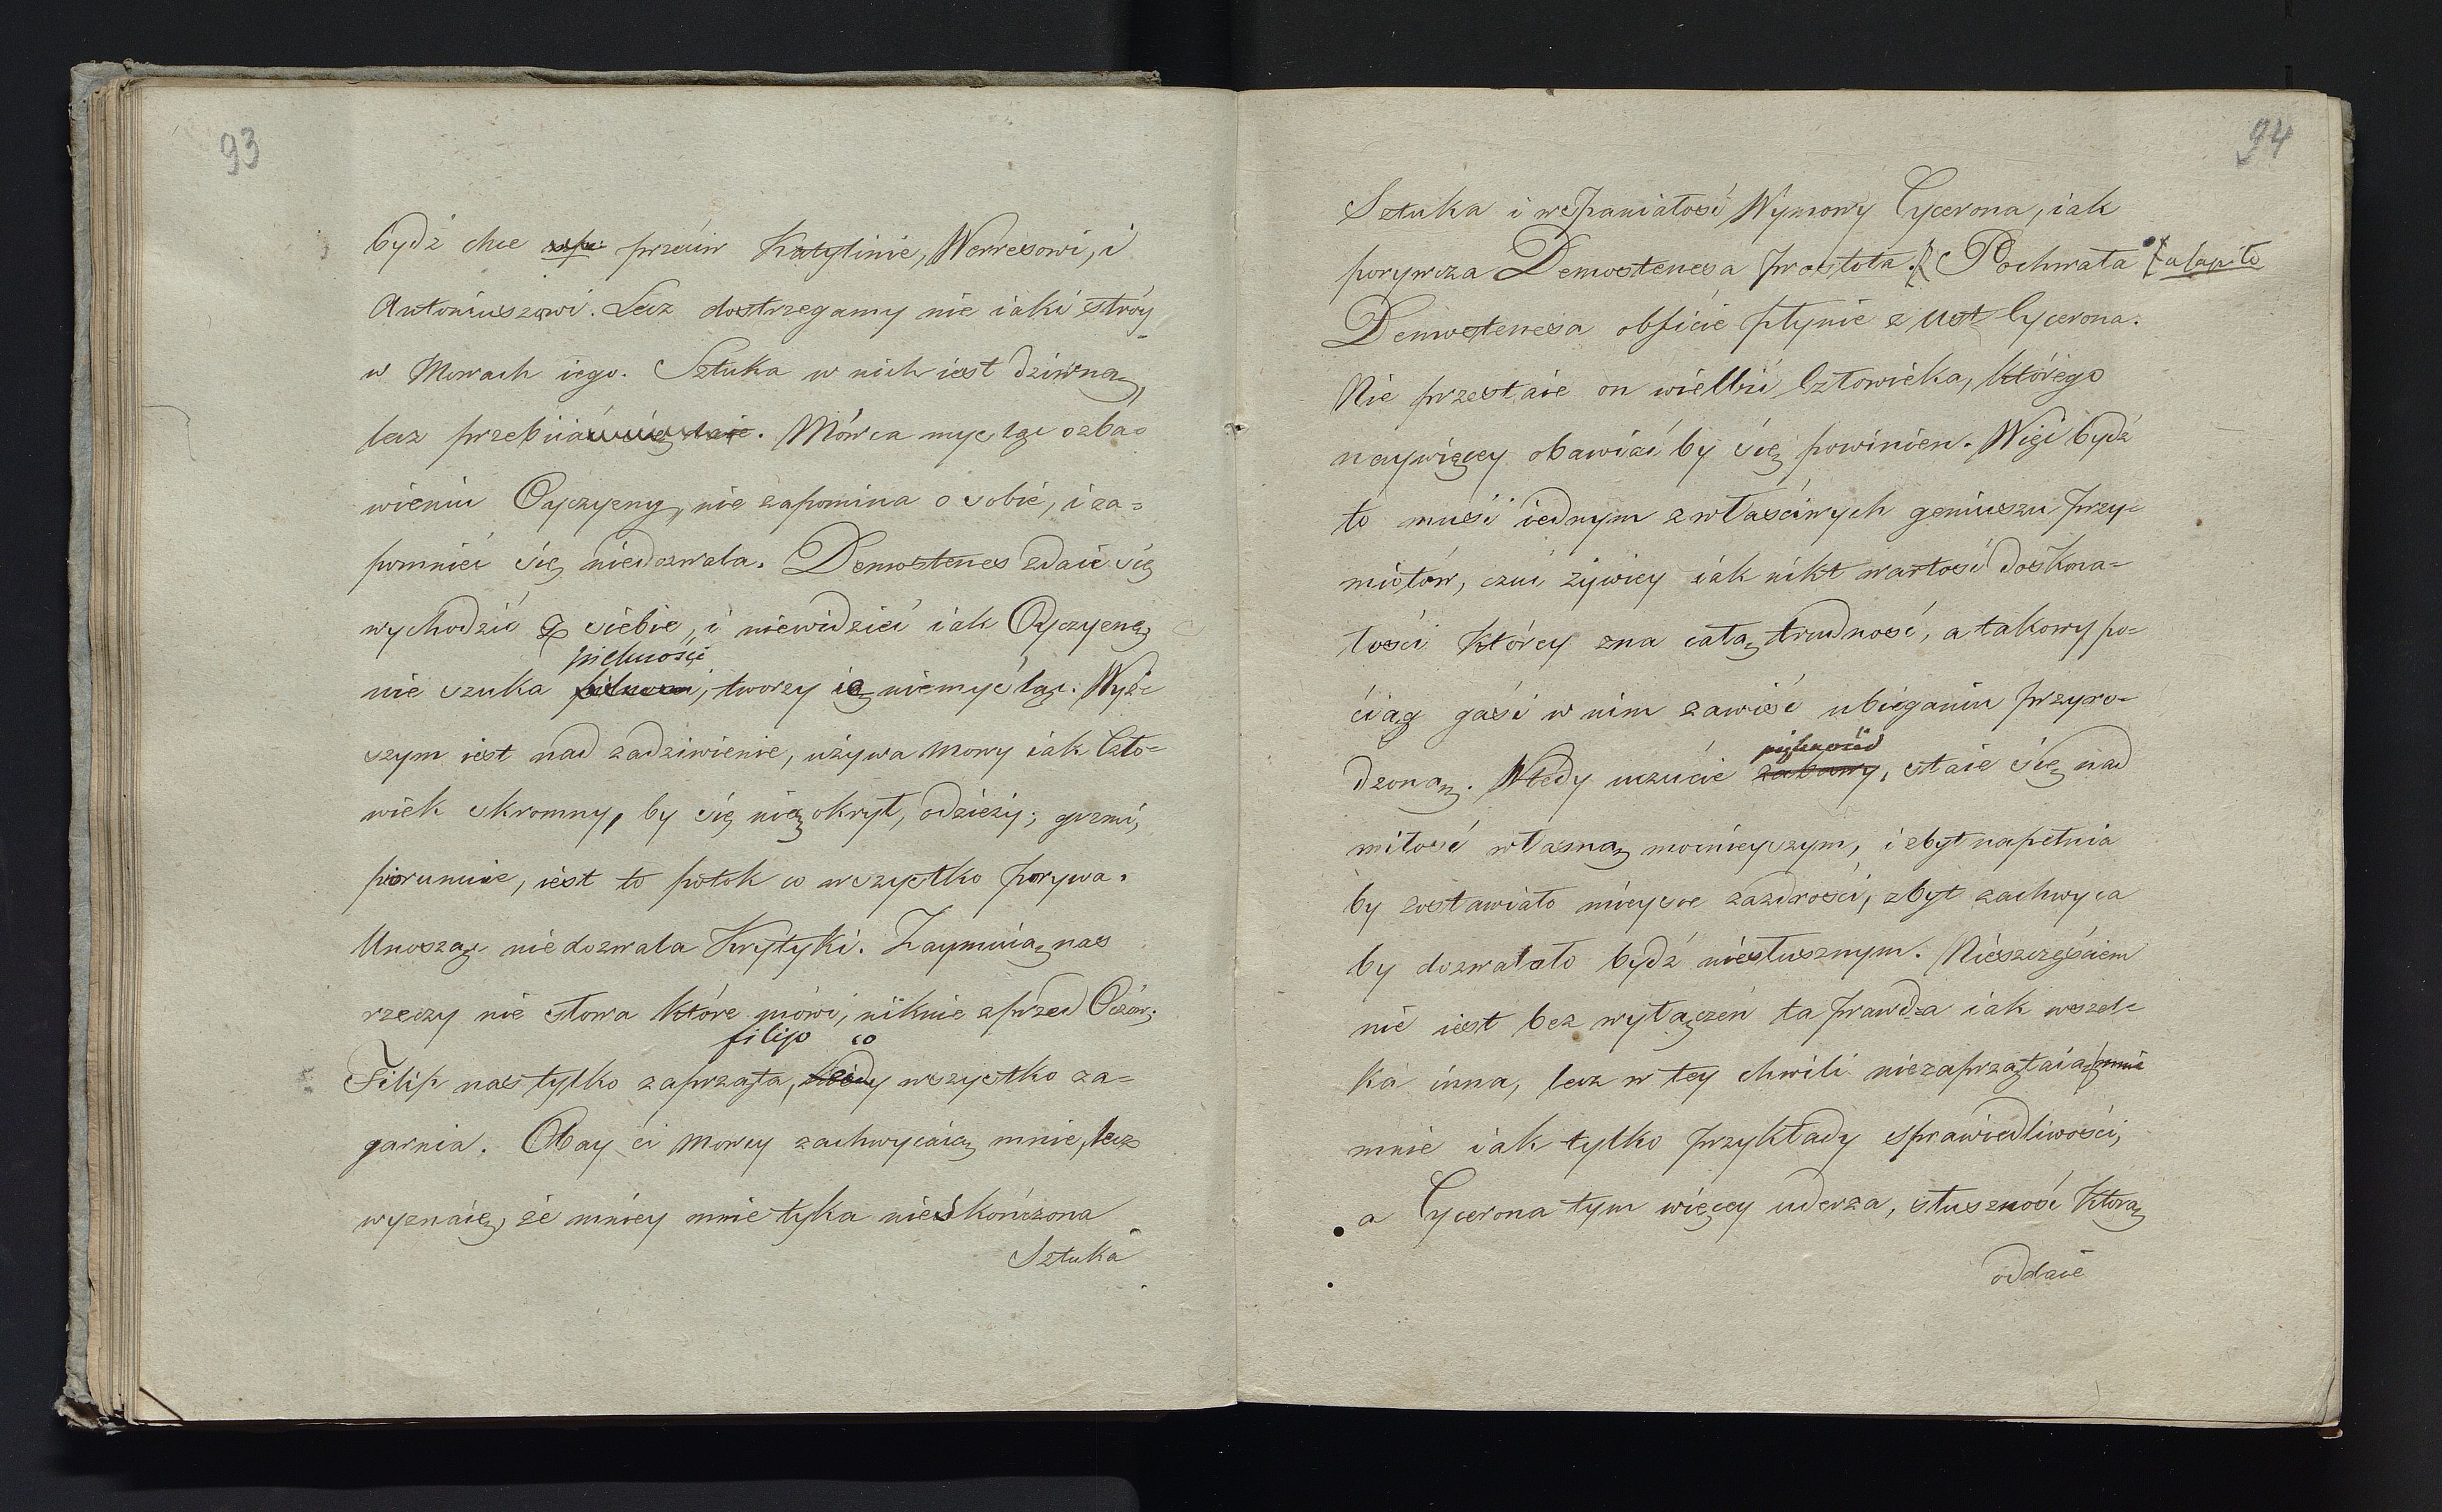 93
bydź chce przeciw Katylinie, Werresowi, i
Antoniuszowi. Lecz dostrzegamy nie iaki stróy
w Mowach iego. Sztuka w nich iest dziwną,
lecz przebiiá się daie. Mówca myśląc o zba=
wieniu Oyczyzny, nie zapomina o sobie, i za=
pomnieć się niedozwala. Demostenes zdaie się
wychodzić z siebie, i niewidzieć iak Oyczyznę
piękności
nie szuka, tworzy ią niemyśląc. Wyż=
szym iest nad zadziwienie, używa mowy iak Czło=
wiek skromny, by się nią okrył, odzieży; grzmi,
piorunuie, iest to potok co wszystko porywa.
Unosząc niedozwala Krytyki. Zaymuią nas
rzeczy nie słowa które mówi, niknie z przed Oczów;
filip co
Filip nas tylko zaprząta, kiedy wszystko za=
garnia. Obay ci mowcy zachwycáią mnie, lecz
wyznáię, że mniey mnie tyka nieskończona
Sztuka
94
Sztuka i wspaniałość Wymowy Cycerona, iak
porywcza Demostenesa prostota. Pochwała
Demostenesa obficie płynie z ust Cycerona.
Nie przestaie on wielbić Człowieka, którego
naywięcey obawiać by się powinien. Więc bydź
to musi iednym z właściwych geniuszu przy=
miotów, czuć żywiey iak nikt wartość doskona=
łości którey zna całą trudność, a takowy po=
ciąg gasi w nim zawiść ubieganiu przyro=
dzoną. Wtedy uczucie
piękności
zabawy, staie się nad
miłość własną mocnieyszym, i zbyt napełnia
by zostawiało mieysce zazdrości, zbyt zachwyca
by dozwalało bydź niesłusznym. Nieszczęściem
nie iest bez wyłączeń ta prawda iak wszel=
ka inna, lecz w tey chwili niezaprzątaią mnie
mnie iak tylko przykłady sprawiedliwości,
a Cycerona tym więcey uderza, słuszność którą
oddaie